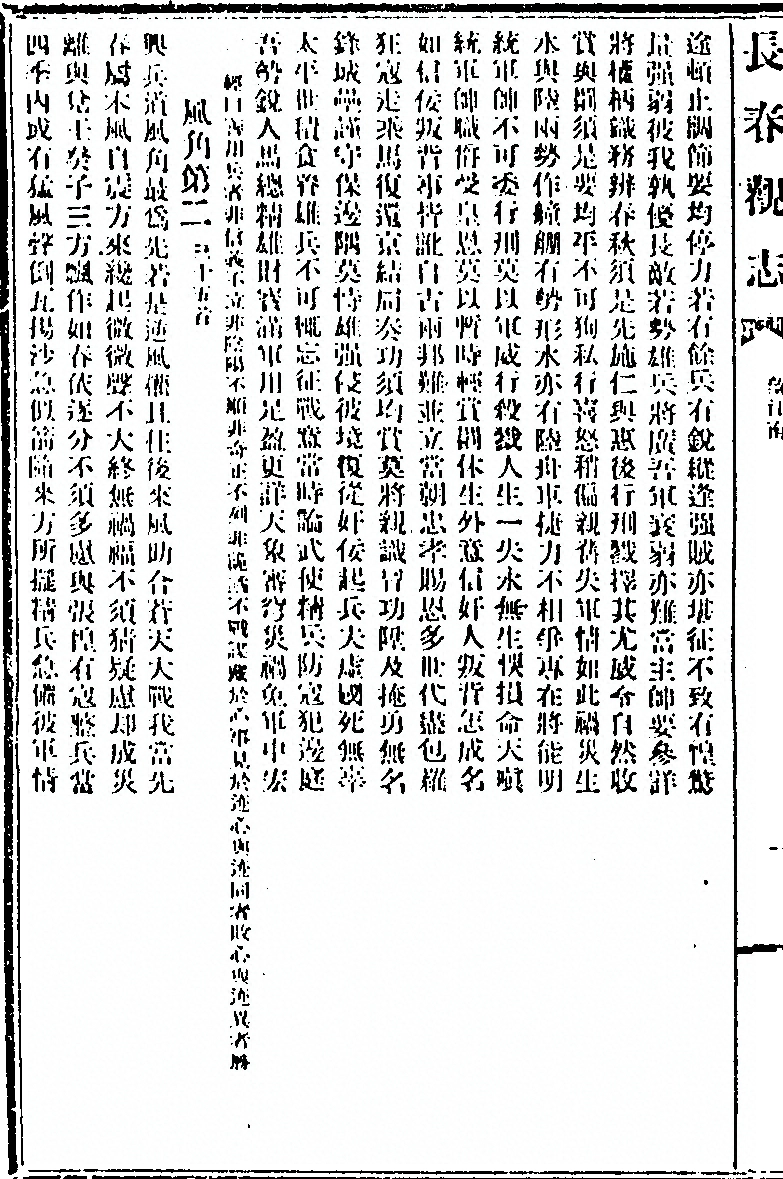 長春觀志
途頓止調節要均停力若有餘兵有銳縱逢强賊亦堪征不致有惶驚
量强弱彼我孰優長敵若勢雄兵將廣吾軍衰弱亦難當主師要參詳
將權柄識務辨春秋須是先施仁與惠後行刑戮擇其尤威令自然收
賞與罰須是要均平不可狥私行喜怒稍偏親舊失軍情如此禍災生
水與陸兩勢作艨艟有勢形水亦有陸舟車捷力不相爭專在將能明
統軍師不可委行刑莫以軍威行殺戮人生一失永無生悞損命天嗔
統軍師職佾受皇恩莫以暫時輕賞罰休生外意信奸人叛背怎成名
如信佞叛背事皆訛自古兩邦難並立當朝忠孝賜恩多世代盡包羅
狂寇走乘馬復還京結局奏功須均賞莫將親識冒功陞及掩勇無名
鋒城壘謹守保邊隅莫恃雄强侵彼境復從奸佞起兵夫虛國死無辜
太平世積食養雄兵不可輒忘征戰意當時論武使精兵防寇犯邊庭
吾勢銳人馬總精雄財寶滿軍用足盈更詳天象審灾禍兔軍中
經曰善用兵者非信義不立非陰陽不順非奇正不列非詭譎不戰謀藏於心事見於迹心與迹同者敗心與迹異者勝
風角第二 三十五首
興兵道風角最爲先若是逆風儞且住後來風助合蒼天大戰我當先
春屬木風自震方來纔起微微聲不大終無禍福不須猜疑慮却成災
離與兌壬癸子三方飄作如春依逐分不須多慮與張惶有寇整兵當
四季內或有猛風聲倒瓦揚沙急似箭隨來方所擺精兵急備彼軍情